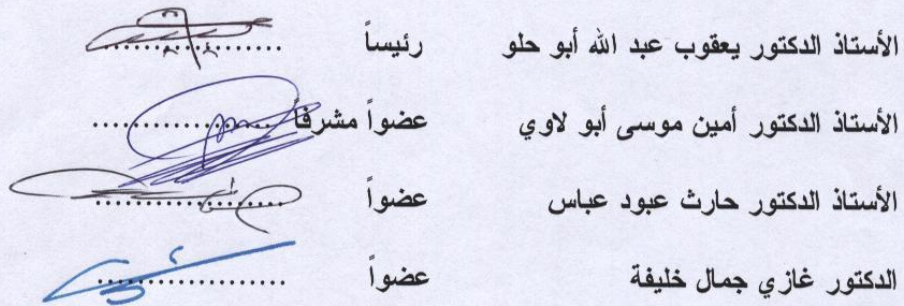 الأستاذ الدكتور يعقوب عبد الله أبو حلو رئيساً ..................
الأستاذ الدكتور أمين موسى أبو لاوي عضواً مشرفاً ..................
الأستاذ الدكتور حارث عبود عباس عضواً ..................
الدكتور غازي جمال خليفة عضواً ..................